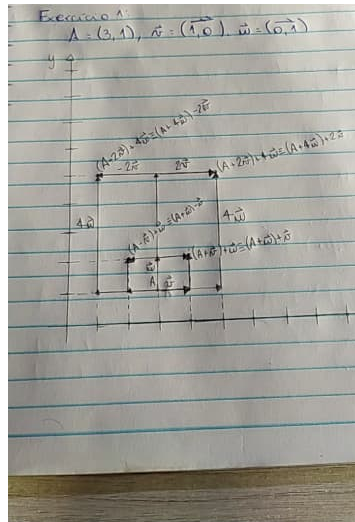 Exercício 1:
A = (3,1), v⃗ = (1,0). w⃗ = (0,1)
y
(A-2v⃗)+4w⃗=(A+4w⃗)-2v⃗
-2v⃗
2v⃗
(A+2v⃗)+4w⃗=(A+4w⃗)+2v⃗
4w⃗
4w⃗
(A-v⃗)+w⃗=(A+w⃗)-v⃗
(A+v⃗)+w⃗=(A+w⃗)+v⃗
w⃗
A
v⃗